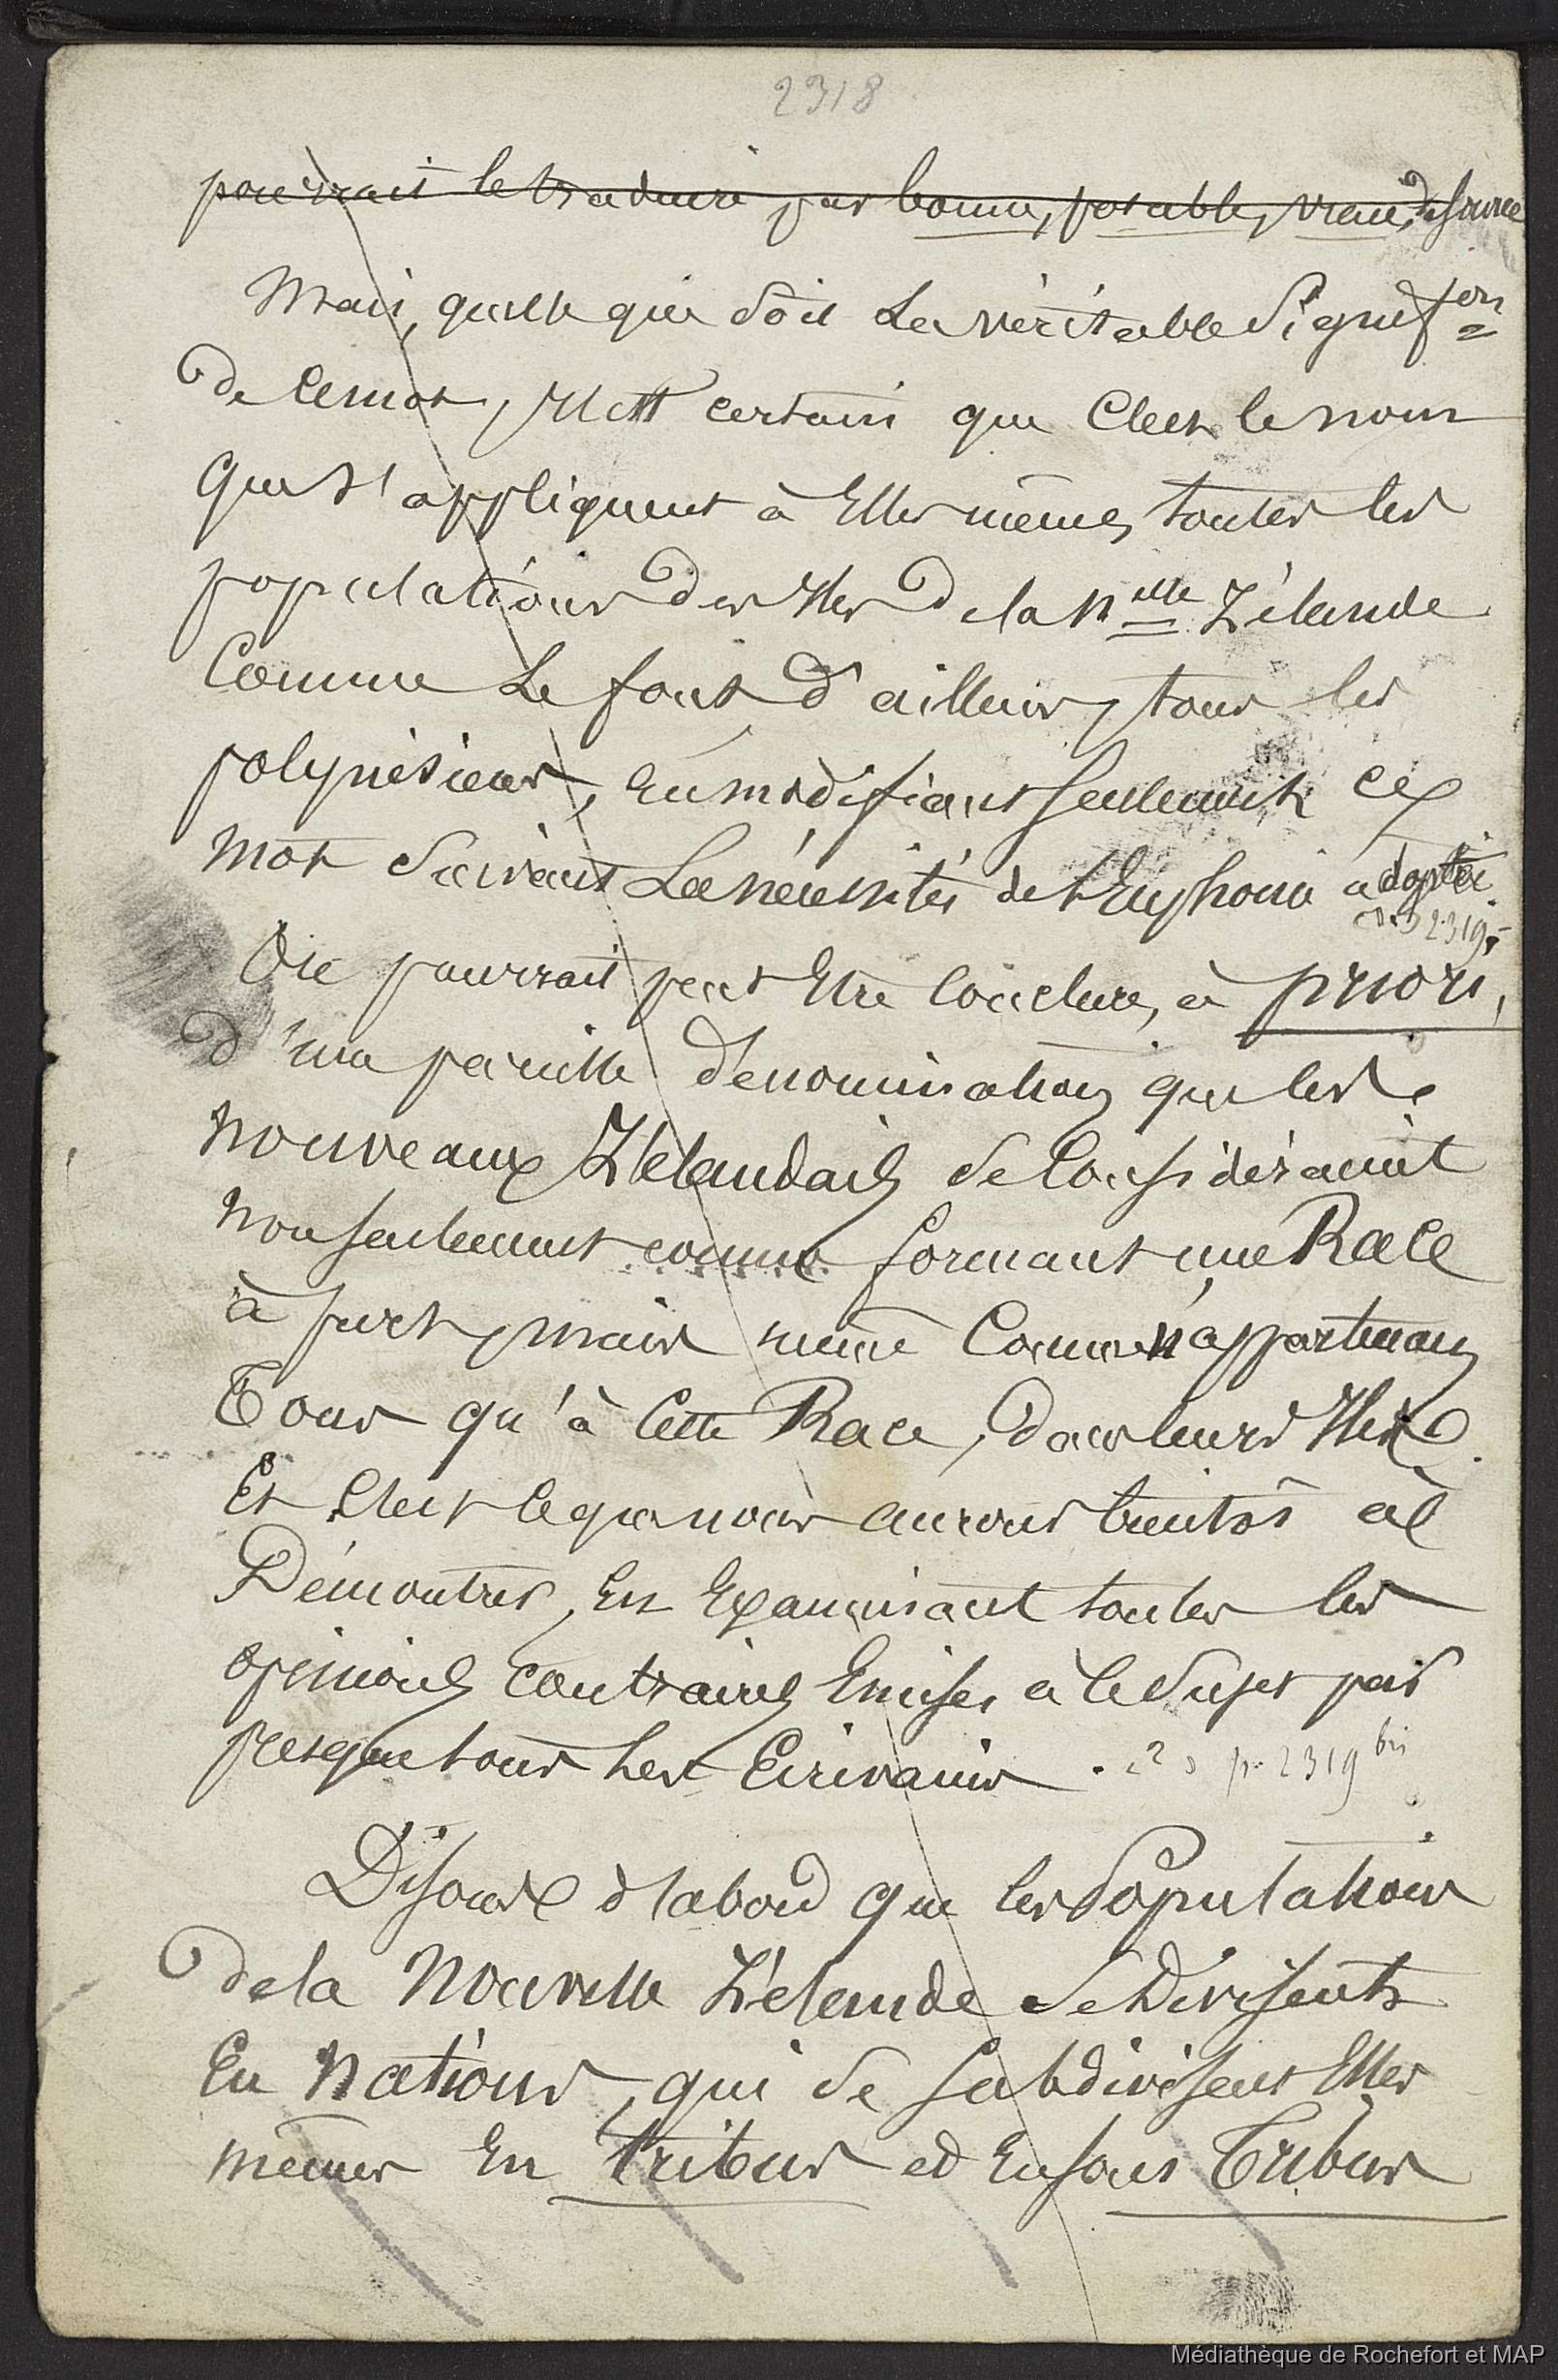 2318
pourrait le traduire par bonne, potable, vraie, de source
Mais, quelle que soit la véritable Signif.on
de ce mot, il est certain que c'est le nom
que s'appliquent à Elles mêmes, toutes les
populations des Iles de la Nlle Zélande
Comme le font d'ailleurs, tous les
polynésiens, en modifiant seulement ce
mot suivant les nécessités de l'Euphonie adoptée.
2319
On pourrait peut Etre conclure, à priori,
d'une pareille dénomination, que les
nouveaux Zélandais, se considéraient
non seulement comme formant une Race
à part, mais même comme n'appartenant
Tous qu'à cette Race, dans leurs Iles.
Et c'est ce que nous aurons bientôt à
Démontrer, en Examinant toutes les
opinions contraires Emises à ce sujet par
presque tous les Ecrivains. p. 2319 bis
Disons d'abord que les Populations
de la Nouvelle Zélande se Divisent
En Nations, qui se subdivisent Elles
mêmes En Tribus et En sous Tribus
Médiathèque de Rochefort et MAP